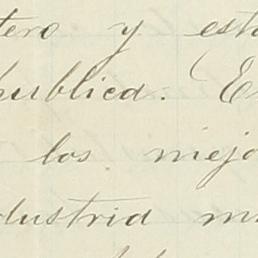 tero y est
publica. E
los mejo
dustria m